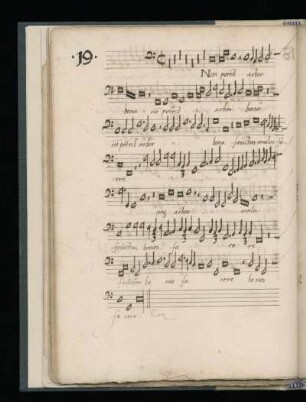 ·19·
Non potest arbor
bona non potest arbor bona
non potest arbor bona fructus malos fa
cere
neq arbor mala
fructus bonos fa ce re
fructus bo nos fa cere bonos
fa cere